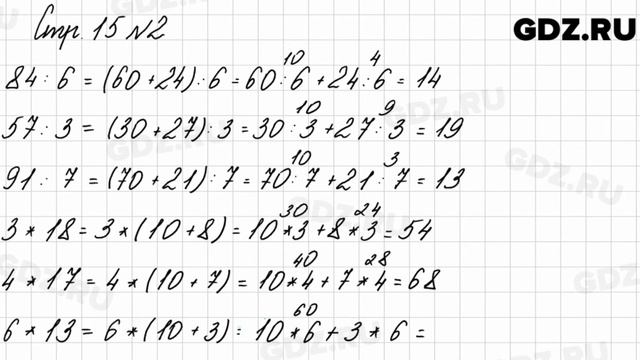 Стр. 15 №2
GDZ.RU
10 4
84 : 6 = (60 + 24) : 6 = 60 : 6 + 24 : 6 = 14
10 9
57 : 3 = (30 + 27) : 3 = 30 : 3 + 27 : 3 = 19
10 3
91 : 7 = (70 + 21) : 7 = 70 : 7 + 21 : 7 = 13
30 24
3 * 18 = 3 * (10 + 8) = 10 * 3 + 8 * 3 = 54
40 28
4 * 17 = 4 * (10 + 7) = 10 * 4 + 7 * 4 = 68
60
6 * 13 = 6 * (10 + 3) : 10 * 6 + 3 * 6 =